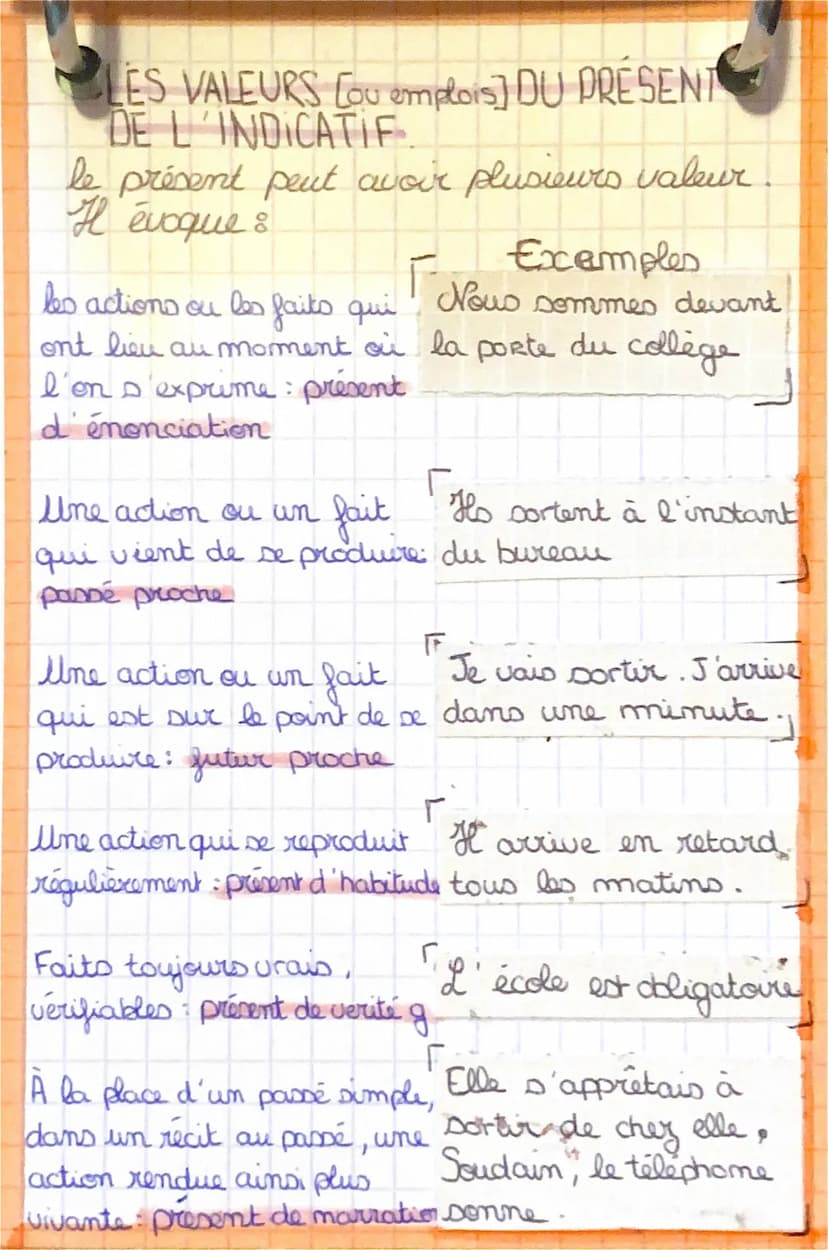 LES VALEURS [ou emplois] DU PRÉSENT
DE L'INDICATIF.
le présent peut avoir plusieurs valeur.
Il évoque :
Exemples
les actions ou les faits qui
ont lieu au moment où
l'on s'exprime : présent
d'énonciation
Nous sommes devant
la porte du collège
Une action ou un fait
qui vient de se produire :
passé proche
Ils sortent à l'instant
du bureau
Une action ou un fait
qui est sur le point de se
produire : futur proche
Je vais sortir. J'arrive
dans une minute.
Une action qui se reproduit
régulièrement : présent d'habitude
Il arrive en retard
tous les matins.
Faits toujours vrais,
vérifiables : présent de verité g
L'école est obligatoire
À la place d'un passé simple,
dans un récit au passé, une
action rendue ainsi plus
vivante : présent de narratio
Elle s'apprêtais à
sortir de chez elle,
Soudain, le téléphone
sonne.